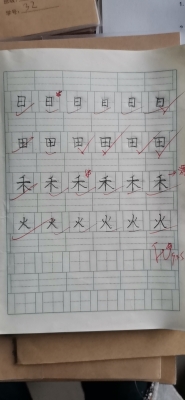 日 日 日 日 日 日
田 田 田 田 田 田
禾 禾 禾 禾 禾 禾
火 火 火 火 火 火